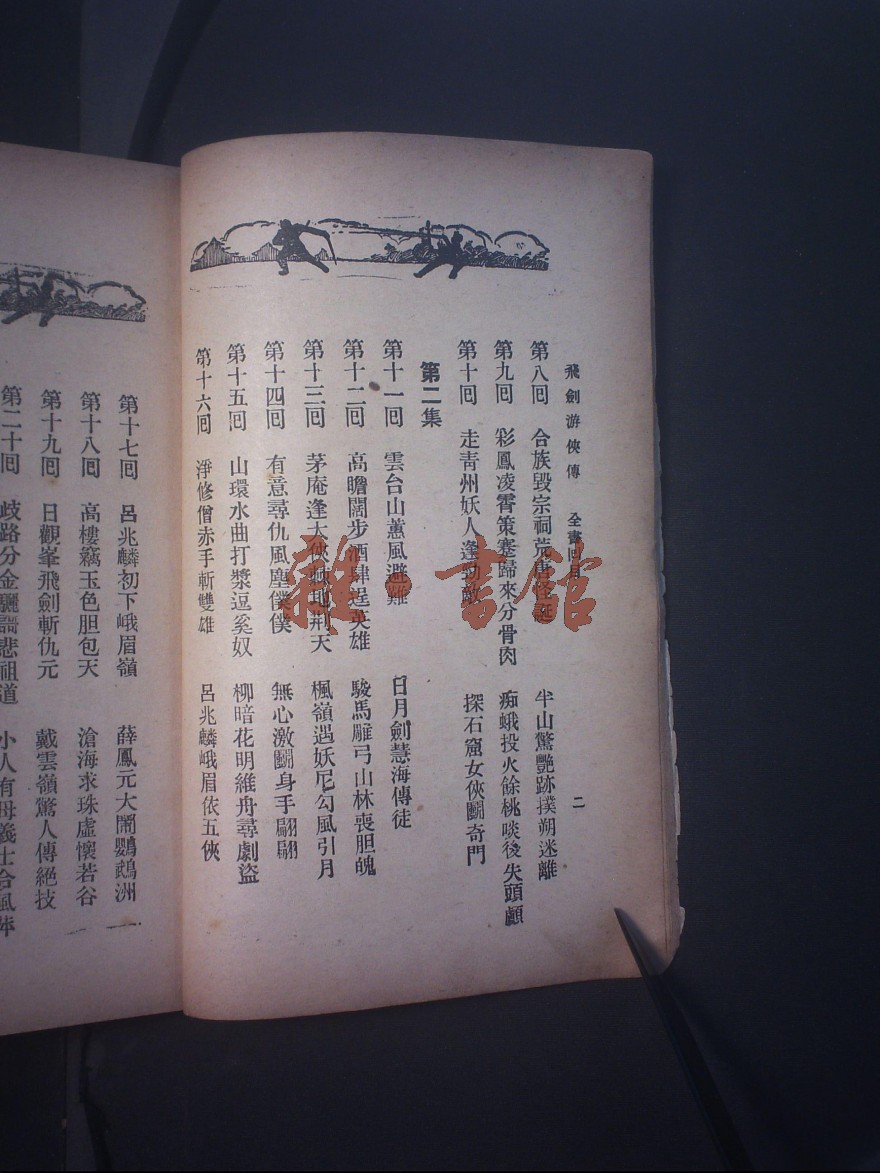 飛劍游俠傳 全書回目 二
第八回 合族毀宗祠荒唐怪誕 半山驚艷跡撲朔迷離
第九回 彩鳳凌霄策蹇歸來分骨肉 痴蛾投火餘桃啖後失頭顱
第十回 走青州妖人逢勁敵 探石窟女俠鬭奇門
第二集
第十一回 雲台山蕙風避難 日月劍慧海傳徒
第十二回 高瞻闊步酒肆逞英雄 駿馬雕弓山林喪胆魄
第十三回 茅庵逢大俠棘地荆天 楓嶺遇妖尼勾風引月
第十四回 有意尋仇風塵僕僕 無心激鬭身手翩翩
第十五回 山環水曲打漿逗奚奴 柳暗花明維舟尋劇盜
第十六回 淨修僧赤手斬雙雄 呂兆麟峨眉依五俠
第十七回 呂兆麟初下峨眉嶺 薛鳳元大鬧鸚鵡洲
第十八回 高樓竊玉色胆包天 滄海求珠虛懷若谷
第十九回 日觀峯飛劍斬仇元 戴雲嶺驚人傳絕技
第二十回 歧路分金驪謌悲祖道 小人有母義士合風
雜·書館